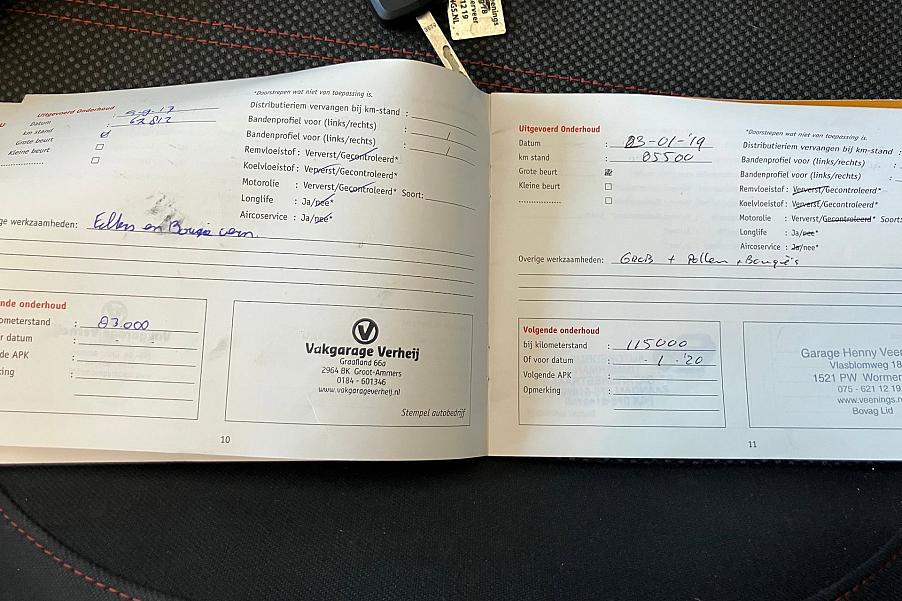 Uitgevoerd Onderhoud
Datum :
km stand : 62812
Grote beurt
Kleine beurt
..............
*Doorstrepen wat niet van toepassing is.
Distributieriem vervangen bij km-stand :
Bandenprofiel voor (links/rechts) : /
Bandenprofiel voor (links/rechts) : /
Remvloeistof : Ververst/Gecontroleerd*
Koelvloeistof : Ververst/Gecontroleerd*
Motorolie : Ververst/Gecontroleerd* Soort:
Longlife : Ja/nee*
Aircoservice : Ja/nee*
ge werkzaamheden:
nde onderhoud
ometerstand : 83.000
r datum :
de APK :
king :
Vakgarage Verheij
Graafland 66a
2964 BK Groot-Ammers
0184 - 601346
www.vakgarageverheij.nl
Stempel autobedrijf
10
Uitgevoerd Onderhoud
Datum : 03-01-'19
km stand : 85500
Grote beurt
Kleine beurt
..............
*Doorstrepen wat niet van toepassing is.
Distributieriem vervangen bij km-stand :
Bandenprofiel voor (links/rechts) :
Bandenprofiel voor (links/rechts) :
Remvloeistof : Ververst/Gecontroleerd*
Koelvloeistof : Ververst/Gecontroleerd*
Motorolie : Ververst/Gecontroleerd* Soort:
Longlife : Ja/nee*
Aircoservice : Ja/nee*
Overige werkzaamheden: Groß + Pollen + Bougie's
Volgende onderhoud
bij kilometerstand : 115000
Of voor datum : -1-'20
Volgende APK :
Opmerking :
Garage Henny Veen
Vlasblomweg 18
1521 PW Wormer
075 - 621 12 19
www.veenings.n
Bovag Lid
11